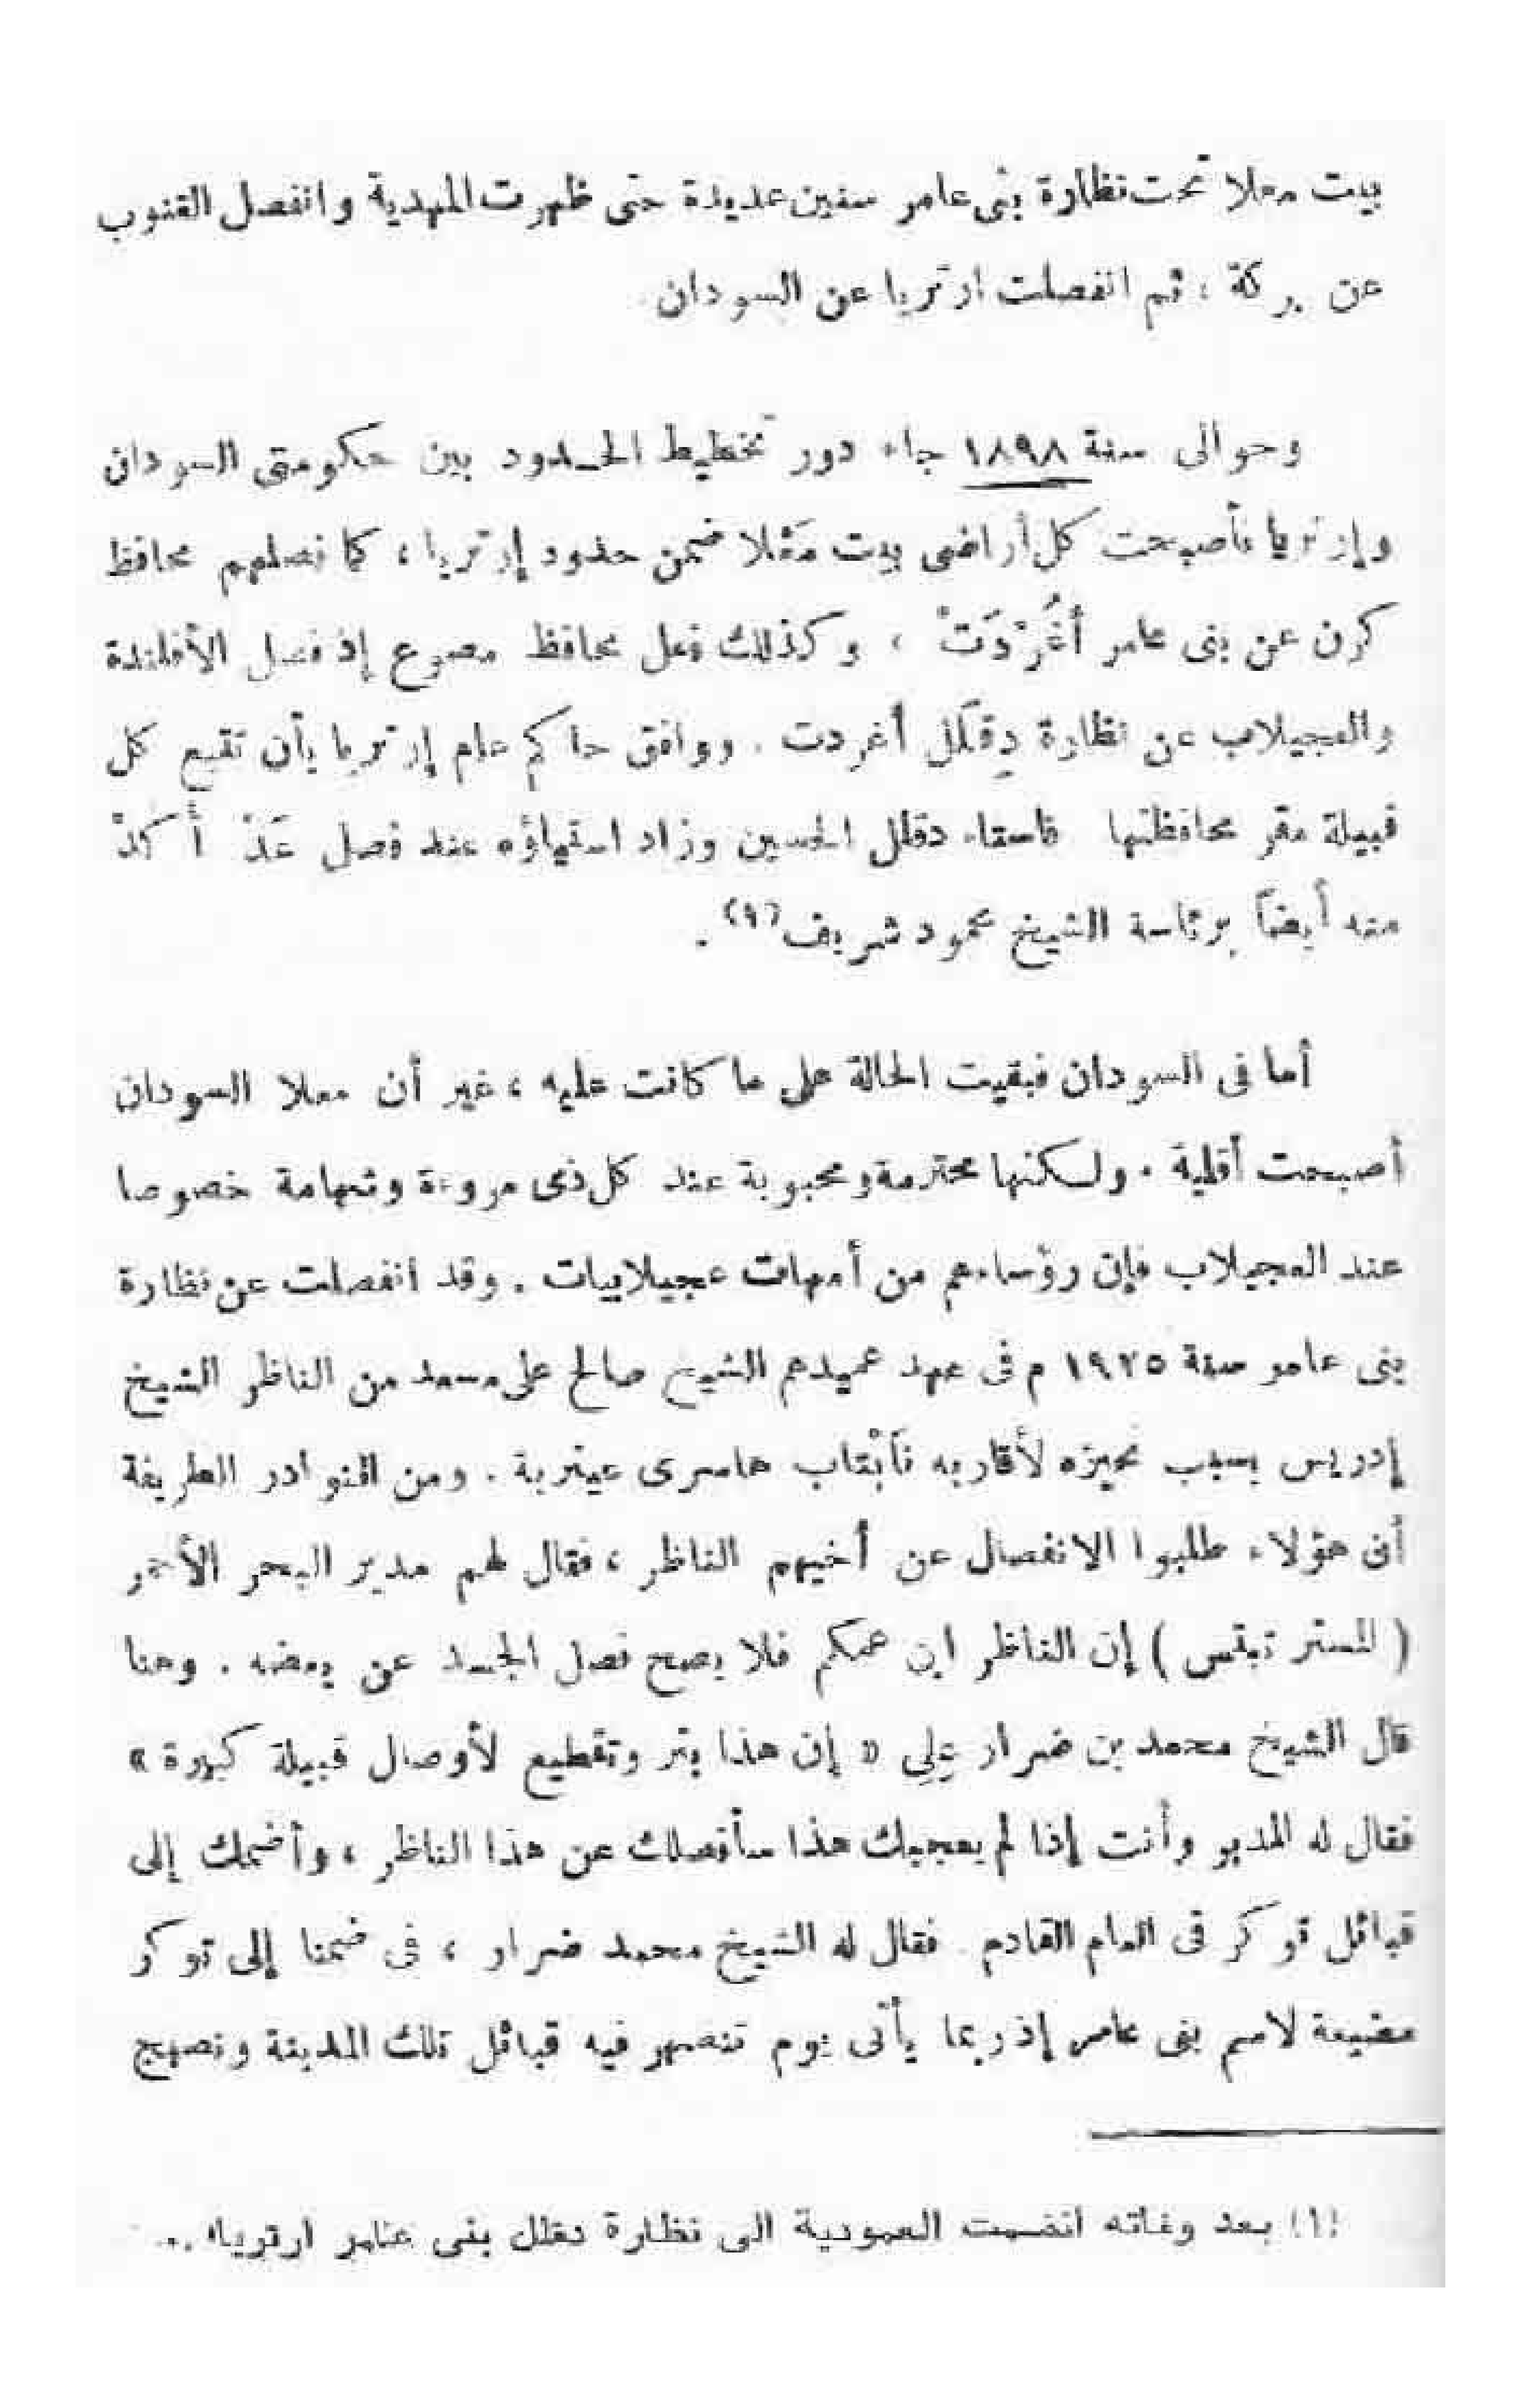 بيت معلا تحت نظارة بنى عامر سنين عديدة حتى ظهرت المهدية وانفصل القنوب
عن بركة ، ثم انفصلت ارتريا عن السودان
وحوالى سنة ١٨٩٨ جاء دور تخطيط الحدود بين حكومتى السودان
وإرتريا فأصبحت كل أراضى بيت مَعْلا ضمن حدود إرتريا ، كما فصلهم محافظ
كرن عن بنى عامر أغُرْدَتْ ، وكذلك فعل محافظ مصوع إذ فصل الأفلندة
والعجيلاب عن نظارة دِقلَل أغردت . ووافق حاكم عام إرتريا بأن تتبع كل
قبيلة مقر محافظتها فاستاء دقلل الحسين وزاد استياؤه عند فصل عَدْ أَكُدْ
منه أيضاً برئاسة الشيخ محمود شريف (١) .
أما فى السودان فبقيت الحالة على ما كانت عليه ، غير أن معلا السودان
أصبحت أقلية . ولكنها محترمة ومحبوبة عند كل ذى مروءة وشهامة خصوصا
عند العجيلاب فإن رؤساءهم من أمهات عجيلابيات . وقد انفصلت عن نظارة
بنى عامر سنة ١٩٢٥ م فى عهد عميدهم الشيخ صالح على مسمد من الناظر الشيخ
إدريس بسبب تحيزه لأقاربه نَابْتاب هاسرى عيتربة . ومن النوادر الطريفة
أن هؤلاء طلبوا الانفصال عن أخيهم الناظر ، فقال لهم مدير البحر الأحمر
( المستر تبتس ) إن الناظر ابن عمكم فلا يصح فصل الجسد عن بعضه . وهنا
قال الشيخ محمد بن ضرار عِلِى « إن هذا بتر وتقطيع لأوصال قبيلة كبيرة »
فقال له المدير وأنت إذا لم يعجبك هذا سأفصلك عن هذا الناظر ، وأضمك إلى
قبائل توكر فى العام القادم . فقال له الشيخ محمد ضرار ، فى ضمنا إلى توكر
مضيعة لاسم بنى عامر إذ ربما يأتى يوم تنصهر فيه قبائل تلك المدينة وتصبح
(١) بعد وفاته انضمت العمودية الى نظارة دقلل بنى عامر ارتريا ..